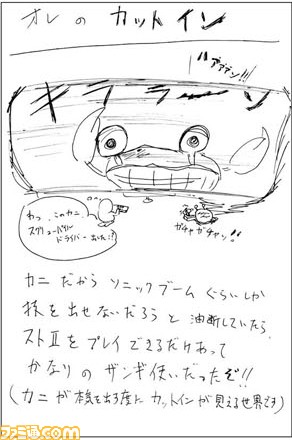 オレの カットイン
バァァァン!!!
キララーン
わっ、このカニ
スクリューパイル
ドライバー出した!?
ガチャガチャッ!!
カニ だから ソニックブーム ぐらいしか
技を出せないだろうと 油断していたら、
ストⅡを プレイ できるだけあって
かなりの ザンギ使いだったぞ!!
(カニが技を出す度に カットインが見える世界です)
ファミ通.com